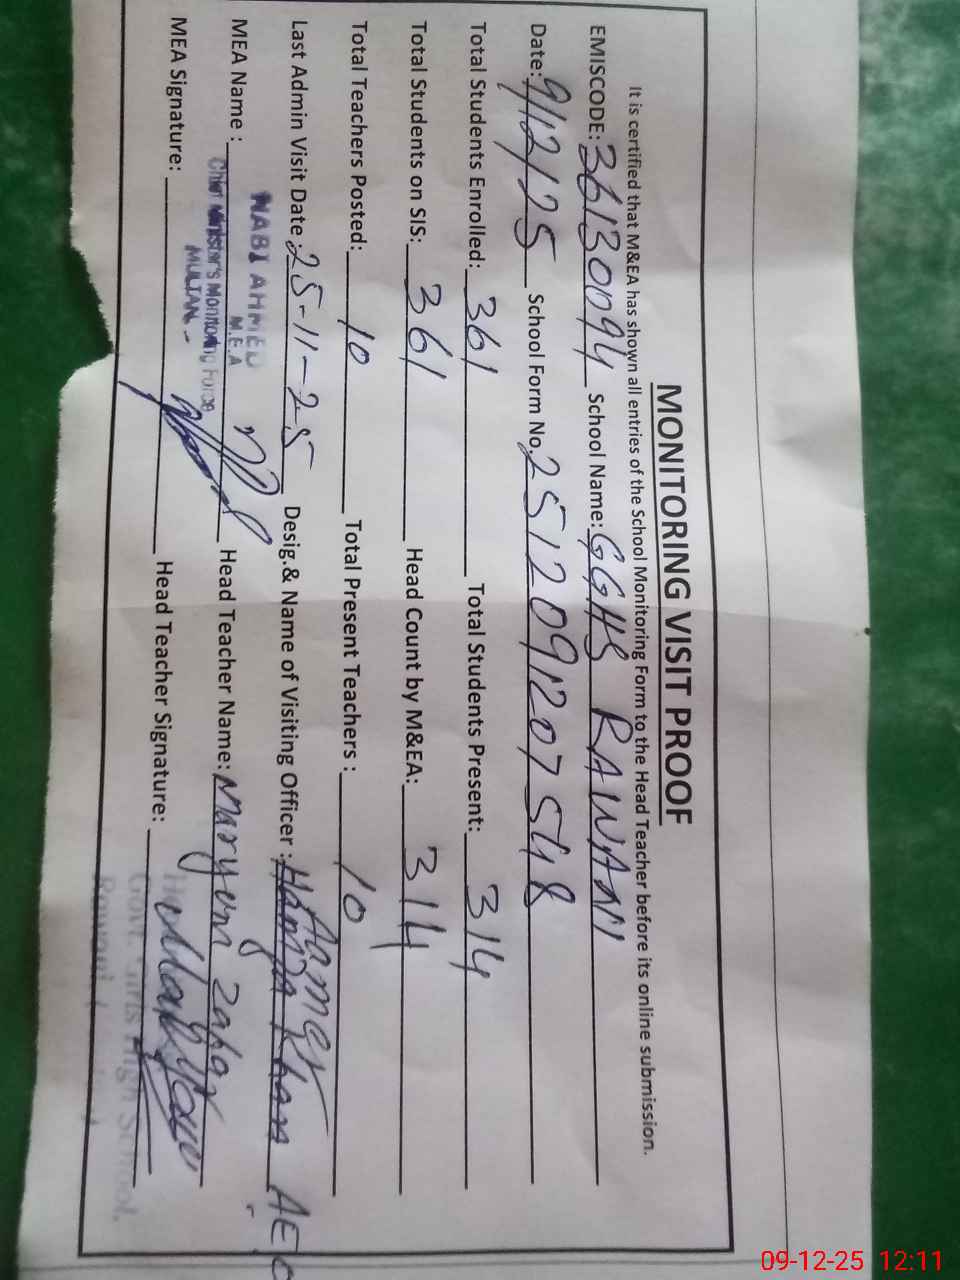 MONITORING VISIT PROOF
It is certified that M&EA has shown all entries of the School Monitoring Form to the Head Teacher before its online submission.
EMISCODE: 36130094 School Name: GGHS RAWANI
Date: 9/12/25 School Form No. 2512091207548
Total Students Enrolled: 361 Total Students Present: 314
Total Students on SIS: 361 Head Count by M&EA: 314
Total Teachers Posted: 10 Total Present Teachers : 10
Last Admin Visit Date : 25-11-25 Desig.& Name of Visiting Officer : Aamer Khan AEO
MEA Name : NABI AHMED Head Teacher Name: Maryum Zahar
M.E.A
Chief Minister's Monitoring Force
MULTAN.
MEA Signature: Head Teacher Signature:
Govt. Girls High School.
Rawani
09-12-25 12:11